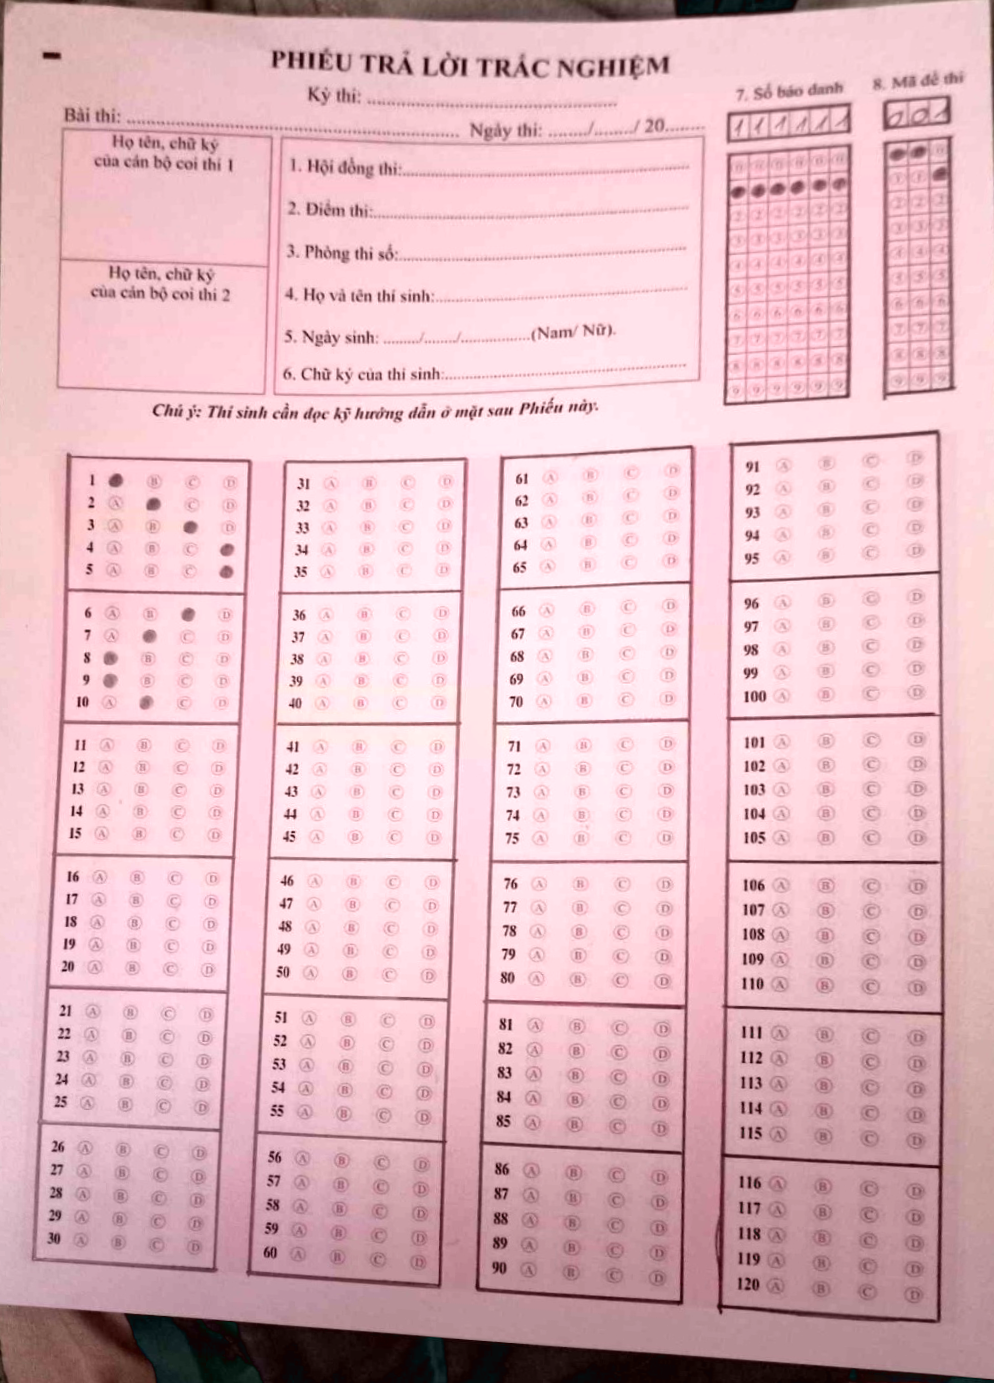 PHIẾU TRẢ LỜI TRẮC NGHIỆM
Kỳ thi: ........................................................
Bài thi: ........................................................ Ngày thi: ......../......../ 20........
7. Số báo danh
8. Mã đề thi
111111
001
Họ tên, chữ ký
của cán bộ coi thi 1
Họ tên, chữ ký
của cán bộ coi thi 2
1. Hội đồng thi:........................................................
2. Điểm thi:........................................................
3. Phòng thi số:........................................................
4. Họ và tên thí sinh:........................................................
5. Ngày sinh: ......../......../................(Nam/ Nữ).
6. Chữ ký của thí sinh:........................................................
Chú ý: Thí sinh cần đọc kỹ hướng dẫn ở mặt sau Phiếu này.
1 B C D
2 A C D
3 A B D
4 A B C
5 A B C
6 A B D
7 A C D
8 B C D
9 B C D
10 A C D
11 A B C D
12 A B C D
13 A B C D
14 A B C D
15 A B C D
16 A B C D
17 A B C D
18 A B C D
19 A B C D
20 A B C D
21 A B C D
22 A B C D
23 A B C D
24 A B C D
25 A B C D
26 A B C D
27 A B C D
28 A B C D
29 A B C D
30 A B C D
31 A B C D
32 A B C D
33 A B C D
34 A B C D
35 A B C D
36 A B C D
37 A B C D
38 A B C D
39 A B C D
40 A B C D
41 A B C D
42 A B C D
43 A B C D
44 A B C D
45 A B C D
46 A B C D
47 A B C D
48 A B C D
49 A B C D
50 A B C D
51 A B C D
52 A B C D
53 A B C D
54 A B C D
55 A B C D
56 A B C D
57 A B C D
58 A B C D
59 A B C D
60 A B C D
61 A B C D
62 A B C D
63 A B C D
64 A B C D
65 A B C D
66 A B C D
67 A B C D
68 A B C D
69 A B C D
70 A B C D
71 A B C D
72 A B C D
73 A B C D
74 A B C D
75 A B C D
76 A B C D
77 A B C D
78 A B C D
79 A B C D
80 A B C D
81 A B C D
82 A B C D
83 A B C D
84 A B C D
85 A B C D
86 A B C D
87 A B C D
88 A B C D
89 A B C D
90 A B C D
91 A B C D
92 A B C D
93 A B C D
94 A B C D
95 A B C D
96 A B C D
97 A B C D
98 A B C D
99 A B C D
100 A B C D
101 A B C D
102 A B C D
103 A B C D
104 A B C D
105 A B C D
106 A B C D
107 A B C D
108 A B C D
109 A B C D
110 A B C D
111 A B C D
112 A B C D
113 A B C D
114 A B C D
115 A B C D
116 A B C D
117 A B C D
118 A B C D
119 A B C D
120 A B C D